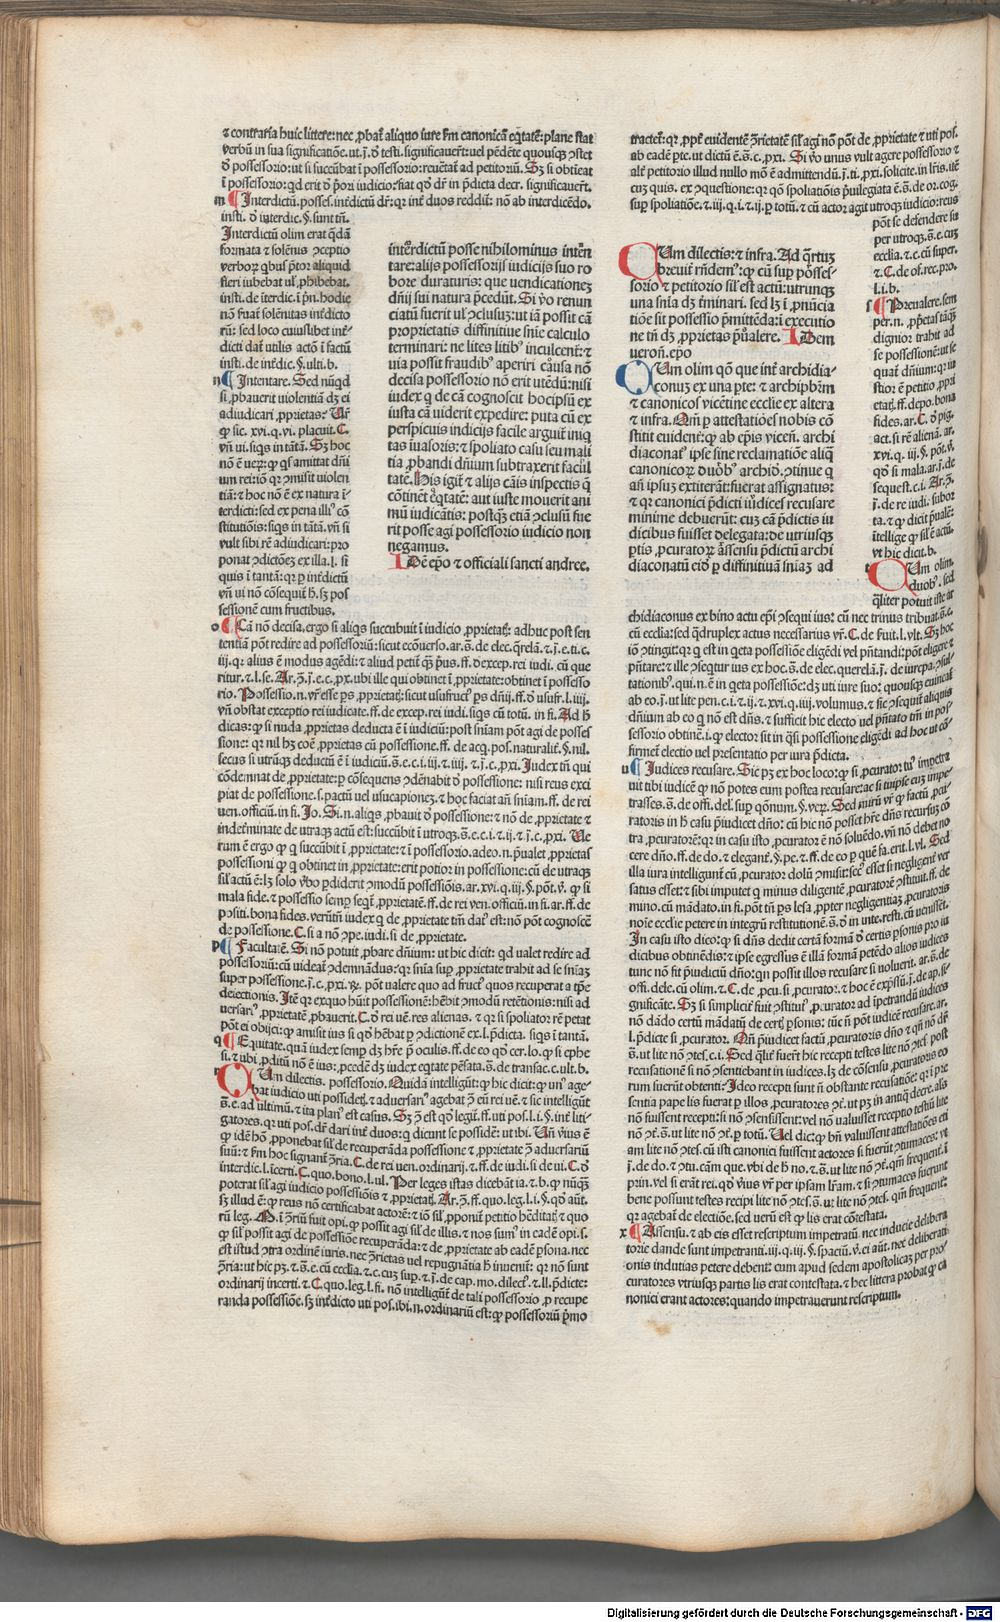 ⁊ contraria huic littere: nec ꝓbat̃ aliquo iure ẜm canonicã eq̃tatẽ: plane stat
verbũ in sua significatiõe. ut. j. ð testi. significauer̃t: vel pẽdẽte quousqꝫ ↄstet
ð possessorio: ut si succũbat ĩ possessorio: reuertat̃ ad petitoriũ. Sꝫ si obtieat
ĩ possessorio: qd erit ð p̃ori iudicio: fiat qð dr̃ in p̃dicta decr. significauer̃t.
m Interdictũ. posses. int̃dictũ dr̃: qr int̃ duos redditũ: nõ ab interdicẽdo.
insti. ð interdic. §. sunt tñ.
Interdictũ olim erat q̃dã
formata ⁊ solẽnis ↄceptio
verboꝝ qbus p̃tor aliquid
fieri iubebat ul' ꝓhibebat.
insti. de ĩterdic. ĩ pñ. hodie
nõ fuat̃ solẽnitas int̃dicto
rũ: sed loco cuiuslibet int̃
dicti dat̃ utilis actõ ĩ factũ
insti. de int̃dic. §. ulti. b.
n Intentare. Sed nũqd
si ꝓbauerit violentiã dʒ ei
adiudicari ꝓprietas? Uĩ
ꝙ sic. xvi. q. vi. placuit. C.
vñ vi. siqs in tãtã. Sꝫ hoc
nõ ẽ ueꝝ: ꝙ qs amittat dñi
um rei: iõ qr ↄmisit violen
tiã: ⁊ hoc nõ ẽ ex natura ĩ
terdicti: sed ex pena illi' cõ
stitutiõis: siqs in tãtã. vñ si
vult sibi rẽ adiudicari: pro
ponat ↄdictiõeꝫ ex illa. l. si
quis ĩ tantã: qr ꝑ int̃dictũ
vñ vi nõ cõsequit̃ h. sꝫ pos
sessionẽ cum fructibus.
interdictum posse nihilominus inten
tare: alijs possessorijs iudicijs suo ro
bore duraturis: que vendicationeꝫ
dñij sui natura p̃cedũt. Si ꝟo renun
ciatũ fuerit ul' ↄclusuꝫ: ut iã possit cã
proprietatis diffinitiue sñie calculo
terminari: ne lites litib' inculcent̃: ⁊
via possit fraudib' aperiri cãusa nõ
decisa possessorio nõ erit utẽdũ: nisi
iudex q̃ de cã cognoscit hocipsũ ex
iusta cã uiderit expedire: puta cũ ex
perspicuis indicijs facile arguit̃ iniq
tas iuasoris: ⁊ spoliato casu seu mali
tia ꝓbandi dñium subtraxerit facul
tatẽ. His igit̃ ⁊ alijs cãis inspectis q̃
cõtinẽt eq̃tatẽ: aut iuste mouerit ani
mũ iudicãtis: postqꝫ etiã ↄclusũ fue
rit posse agi possessorio iudicio non
negamus.
IDẽ ep̃o ⁊ officiali sancti andree.
o Cã nõ decisa. ergo si aliqs succubuit ĩ iudicio ꝓprietat̃: adhuc post sen
tentiã põt redire ad possessoriũ: sicut eↄuerso. ar. s̃. de elec. q̃relã. ⁊. j. e. ti. c.
iij. qr alius ẽ modus agẽdi: ⁊ aliud petit̃ qꝫ p̃us. ff. ð excep. rei iudi. cũ que
ritur. ⁊. l. se. Ar. ↄ̃. j. e. c. px. ubi ille qui obtinet ĩ ꝓprietate: obtinet ĩ possesso
rio. Possessio. n. vr̃ esse ps ꝓprietat̃: sicut usufruct' ps dñij. ff. ð usufr. l. iiij.
vñ obstat exceptio rei iudicate. ff. de excep. rei iudi. siqs cũ totũ. in fi. Ad h̃
dicas: ꝙ si nuda ꝓprietas deducta ẽ ĩ iudiciũ: post sñiam põt agi de posses
sione: qr nil hꝫ coẽ ꝓprietas cũ possessione. ff. de acq. pos. naturalit̃. §. nil.
secus si utrũqꝫ deductũ ẽ ĩ iudiciũ. s̃. e. c. i. iij. ⁊ iiij. ⁊. j. c. pxi. Iudex tñ qui
cõdẽnat de ꝓprietate: ꝑ cõsequens ↄdẽnabit ð possessione: nisi reus exci
piat de possessione. s. pactũ vel usucapioneꝫ. ⁊ hoc faciat añ sñiam. ff. de rei
uen. officiũ. in fi. Jo. Si. n. aliqs ꝓbauit ð possessione: ⁊ nõ de ꝓprietate ⁊
indet̃minate de utraqꝫ actũ est: succũbit ĩ utroqꝫ. s̃. e. c. i. ⁊ ij. ⁊ j. c. pxi. Ue
rum ẽ ergo ꝙ q̃ succũbit ĩ ꝓprietate: ⁊ ĩ possessorio. adeo. n. p̃ualet ꝓprietas
possessioni ꝙ q̃ obtinet in ꝓprietate: erit potior in possessione: cũ de utraqꝫ
sil' actũ ẽ: lꝫ solo ꝟbo ꝑdiderit ↄmodũ possessiõis. ar. xvi. q. iij. §. põt. ꝟ. ꝙ si
mala fide. ⁊ possessio semp seqt̃ ꝓprietatẽ. ff. de rei ven. officiũ. in fi. ar. ff. de
positi. bona fides. verũtñ iudex q̃ de ꝓprietate tm̃ dat' est: nõ põt cognoscẽ
de possessione. C. si a nõ ↄpe. iudi. si de ꝓprietate.
p Facultatẽ. Si nõ potuit ꝓbare dñium: ut hic dicit: qd ualet redire ad
possessoriũ: cũ uideat̃ ↄdemnãdus: qr sñia sup ꝓprietate trahit ad se sñiaꝫ
super possessione. j. c. pxi. ꝶ. põt valere quo ad fruct' quos recuperat a tp̃e
deiectionis. Itẽ qr exquo hũit possessionẽ: hẽbit ↄmodũ retẽtionis: nisi ad
uersari' ꝓprietatẽ ꝓbauerit. C. ð rei uẽ. res alienas. ⁊ qr si spoliator rẽ petat
põt ei obijci: ꝙ amisit ius si qð hẽbat ꝑ ↄdictionẽ ex. l. p̃dicta. siqs ĩ tantã.
q Equitate. quã iudex semp dʒ hr̃e p̃ oculis. ff. de eo qð cer. lo. ꝙ si ephe
si. ⁊ ubi ꝓditũ nõ ẽ ius: ꝓcedẽ dʒ iudex eqtate p̃ẽsata. s̃. de transac. c. ult. b.
r QUm dilectis. possessorio. Quidã intelligũt: ꝙ hic dicit: ꝙ un' age-
bat iudicio uti possidet̃: ⁊ aduersari' agebat ↄ̃ eũ rei uẽ. ⁊ sic intelligũt
s̃. e. ad ultimũ. ⁊ ita plan' est casus. Sꝫ ↄ̃ est qð legit̃. ff. uti pos. l. i. §. int̃ liti-
gatores. qr uti pos. dr̃ dari int̃ duos: q̃ dicunt se possidẽ: ut ibi. Uñ ꝟius ẽ
ꝙ idẽ hõ ꝓponebat sil' de recuperãda possessione ⁊ ꝓprietate ↄ̃ aduersariũ
suũ: ⁊ ẜm hoc signant̃ ↄ̃ria. C. de rei uen. ordinarij. ⁊. ff. de iudi. si de ui. C. ð
interdic. l. icerti. C. quo. bono. l. ul. Per leges istas dicebãt ia. ⁊. b. ꝙ nũqꝫ
poterat sil' agi iudicio possessiõis ⁊ ꝓprietat̃. Ar. ↄ̃. ff. quo. leg. l. i. §. qð aũt.
sꝫ illud ẽ: ꝙ reus nõ certificabat actorẽ: ⁊ iõ sil' ꝓponit̃ petitio hẽditat̃ ⁊ quo
rũ leg. P. ĩ ↄ̃riũ fuit opi. ꝙ possit agi sil' de illis. ⁊ nos sum' in eadẽ opi. s.
ꝙ sil' possit agi de possessiõe recuperãda: ⁊ de ꝓprietate ab eadẽ p̃sona. nec
est istud ↄtra ordinẽ iuris. nec ↄ̃rietas uel repugnãtia h̃ inuenit̃: qr nõ sunt
ↄ̃ria: ut hic pꝫ. ⁊ s̃. e. cũ ecclia. ⁊ c. cuꝫ sup. ⁊. j. de cap. mo. dilect'. ⁊. ll. p̃dicte:
ordinarij incerti. ⁊. C. quo. leg. l. fi. nõ intelligũt̃ de tali possessorio ꝓ recupe
randa possessiõe. sꝫ int̃dicto uti pos. ibi. n. ordinariũ est: ꝙ possessoriũ p̃mo
tractet̃: qr ꝓpt̃ euidentẽ ↄ̃rietatẽ sil' agi nõ põt de ꝓprietate ⁊ uti pos.
ab eadẽ pte. ut dictũ ẽ. s̃. c. pxi. Si ꝟo unus vult agere possessorio ⁊
alẽ petitorio illud nullo mõ ẽ admittendũ. j. ti. pxi. solicite. in lr̃is. itẽ
cuꝫ quis. ex ↄquestione: qr qõ spoliatiõis p̃uilegiata ẽ. s̃. de or. cog.
sup spoliatiõe. ⁊. iij. q. i. ⁊ ij. ꝑ totũ. ⁊ cũ actor agit utroqꝫ iudicio: reus
põt se defendere su
per utroqꝫ. s̃. e. cuꝫ
ecclia. ⁊ c. cũ super.
⁊. C. de of. rec. pro.
l. i. b.
s Preualere. sem
per. n. ꝓp̃etas tãqꝫ
dignio: trahit ad
se possessionẽ: ut se
quat̃ dñium: qr iu
stior ẽ petitio ꝓpri
etat̃. ff. depo. bona
fides. ar. C. ð pig.
act. si rẽ alienã. ar.
xvi. q. iij. §. põt. ꝟ.
qð si mala. ar. j. de
sequest. c. i. Ar. ↄ̃.
j. de re iudi. subor
ta. ⁊ ꝙ dicit p̃ualẽ:
ĩtellige ꝙ sil' ẽ actũ.
vt hic dicit. b.
t QUm olim.
duob'. sed
q̃liter potuit iste ar
QUm dilectis: ⁊ infra. Ad q̃rtuꝫ
breuit̃ rñdem': ꝙ cũ sup posses
sorio ⁊ petitorio sil' est actũ: utrunqꝫ
una sñia dʒ t̃minari. sed lꝫ ĩ ꝓnũcia
tiõe sit possessio p̃mittẽda: ĩ executio
ne tñ dʒ ꝓprietas p̃ualere. IDem
ueroñ. ep̃o
QUm olim qõ que int̃ archidia-
conuꝫ ex una pte: ⁊ archipbr̃m
⁊ canonicos vicẽtine ecclie ex altera
⁊ infra. Qm̃ ꝑ attestatiões nobis cõ
stitit euident̃: ꝙ ab ep̃is viceñ. archi
diaconat' ipse sine reclamatiõe aliq̃
canonicoꝝ duob' archid. ↄtinue q̃
añ ipsuꝫ extiterãt: fuerat assignatus:
⁊ qr canonici p̃dicti iudices recusare
minime debuerũt: cuꝫ cã p̃dictis iu
dicibus fuisset delegata: de utriusqꝫ
ptis ꝓcuratoꝝ assensu p̃dictũ archi
diaconatũ eidẽ ꝑ diffinitiuã sñiaꝫ ad
chidiaconus ex bino actu ep̃i ↄsequi ius: cũ nec trinus tribuat. s̃. e.
cũ ecclia: sed q̃druplex actus necessarius vr̃. C. de ẜuit. l. vlt. Sꝫ hoc
iõ ↄtingit: qr q̃ est in q̃eta possessiõe eligẽdi vel p̃ntandi: põt eligere ⁊
p̃ntare: ⁊ ille ↄseqtur ius ex hoc. s̃. de elec. querelã. j. de iurepa. ↄsul
tationib'. qui. n. ẽ in qeta possessiõe: dʒ uti iure suo: quousqꝫ euincat̃
ab eo. j. ut lite pen. c. i. ⁊ ij. ⁊ xvi. q. iiij. volumus. ⁊ sic ↄseqt̃ aliquis
dñium ab eo q̃ nõ est dñs. ⁊ sufficit hic electo uel p̃ntato tm̃ in pos
sessorio obtinẽ. i. ꝙ elector sit in q̃si possessione eligẽdi ad hoc ut cõ
firmet̃ electio uel presentatio per iura p̃dicta.
u Iudices recusare. Sic pꝫ ex hoc loco: ꝙ si ꝓcurator tu' impetra
uit tibi iudicẽ ꝙ nõ potes eum postea recusare: ac si tuipse euꝫ impe-
trasses. s̃. de offi. del. sup qõnum. §. veꝝ. Sed mirũ vr̃ ꝙ factũ ꝓcu
ratoris in h̃ casu p̃iudicet dño: cũ hic nõ posset hr̃e dñs recursuꝫ cõ
tra ꝓcuratorẽ: qr in casu isto ꝓcuratorẽ nõ soluẽdo. vñ nõ debet no
cere dño. ff. de do. ⁊ elegant̃. §. pe. ⁊. ff. de eo ꝑ quẽ fa. erit. l. vl. Sed
illa iura intelligunt̃ cũ ꝓcurator dolũ ↄmisit: sec' esset si negligent̃ ver
satus esset: ⁊ sibi imputet q̃ minus diligentẽ ꝓcuratorẽ ↄstituit. ff. de
mino. cũ mãdato. in fi. põt tñ ps lesa ꝓpter negligentiaꝫ ꝓcuratoris
noĩe ecclie petere in integrũ restitutionẽ. s̃. ð in inte. resti. cũ uenisset.
In casu isto dico: ꝙ si dñs dedit certã formã ð certis p̃sonis pro iu
dicibus obtinẽdis: ⁊ ipse egressus ẽ illã formã petẽdo alios iudices
tunc nõ fit p̃iudiciũ dño: qn possit illos recusare si noluerit. ar. s̃. de
offi. dele. cũ olim. ⁊. C. de ꝓcu. si ꝓcurator. ⁊ hoc ẽ exp̃ssũ. j. de ap. si
gnificãte. Sꝫ si simplicit̃ fuit ↄstitut' ꝓcurator ad ĩpetrandũ iudices
nõ dãdo certũ mãdatũ de cert̃ p̃sonis: tũc ñ põt iudicẽ recusare. ar.
l. p̃dicte si ꝓcurator. Qñ p̃iudicet factũ ꝓcuratoris dño ⁊ qñ nõ dr̃
s̃. ut lite nõ ↄtes. c. i. Sed q̃lit̃ fuer̃t hic recepti testes lite nõ ↄtes. post
recusationẽ si nõ ↄsentiebant in iudices. lꝫ de cõsensu ꝓcuratoris eo
rum fuerũt obtenti? Ideo recepti sunt ñ obstante recusatiõe: qr ĩ pre
sentia pape lis fuerat ꝑ illos ꝓcuratores ↄt̃. ut pꝫ in antiq̃ decre. alĩs
nõ fuissent recepti: si nõ ↄsensissent: vel nõ valuisset receptio testiũ lite
nõ ↄt̃. s̃. ut lite nõ ↄt̃. ꝑ totũ. Uel dic: ꝙ bñ valuissent attestatiões eti
am lite nõ ↄtes. cũ isti canonici fuissent actores si fuerũt ↄtumaces: vt
j. de do. ⁊ ↄtu. cãm que. vbi de h̃ no. ⁊. s̃. ut lite nõ ↄt̃. qm̃ frequent̃. ĩ
prin. vel si erãt rei. qð ꝟius vr̃ per ipsam lr̃am. ⁊ si ↄtumaces fuerunt
bene possunt testes recipi lite nõ ↄtes. s̃. ut lite nõ ↄtes. qm̃ frequent̃:
qr agebat̃ de electiõe. sed uerũ est ꝙ lis erat cõtestata.
x Assensu. ⁊ ab eis esset rescriptum impetratũ. nec inducie delibera
torie dande sunt impetranti. iij. q. iij. §. spaciũ. ꝟ. ei aũt. nec deliberati
onis indutias petere debent: cum apud sedem apostolicaꝫ per pro
curatores vtriusqꝫ partis lis erat contestata. ⁊ hec littera probat ꝙ ca
nonici erant actores: quando impetrauerunt rescriptum.
Digitalisierung gefördert durch die Deutsche Forschungsgemeinschaft - DFG